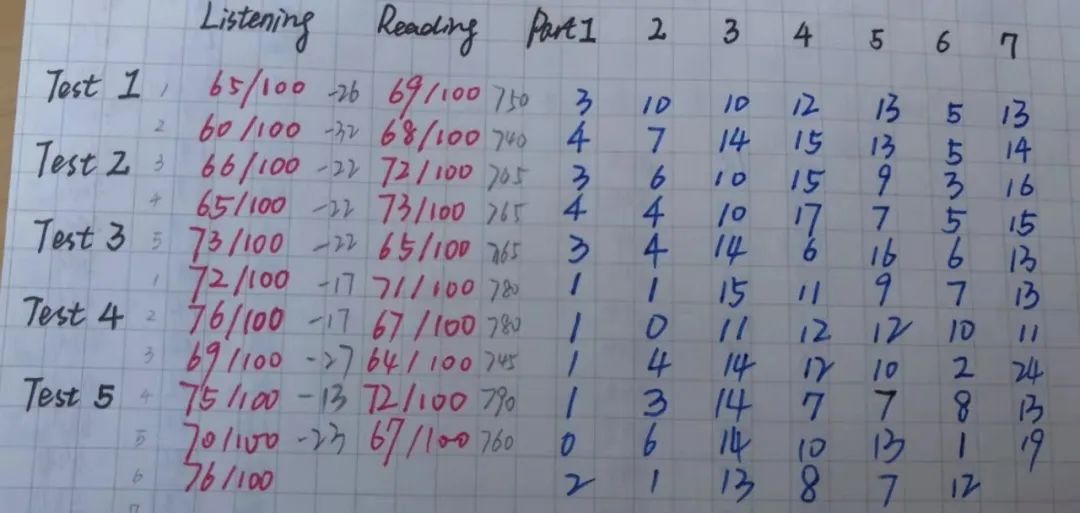 Listening Reading Part 1 2 3 4 5 6 7
Test 1 1 65/100 -26 69/100 750 3 10 10 12 13 5 13
2 60/100 -32 68/100 740 4 7 14 15 13 5 14
Test 2 3 66/100 -22 72/100 765 3 6 10 15 9 3 16
4 65/100 -22 73/100 765 4 4 10 17 7 5 15
Test 3 5 73/100 -22 65/100 765 3 4 14 6 16 6 13
1 72/100 -17 71/100 780 1 1 15 11 9 7 13
Test 4 2 76/100 -17 67/100 780 1 0 11 12 12 10 11
3 69/100 -27 64/100 745 1 4 14 12 10 2 24
Test 5 4 75/100 -13 72/100 790 1 3 14 7 7 8 13
5 70/100 -23 67/100 760 0 6 14 10 13 1 19
6 76/100 2 1 13 8 7 12